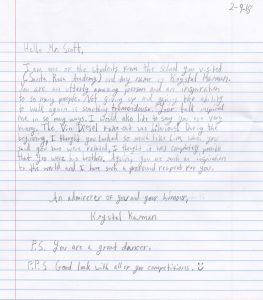 2-9-18
Hello Mr. Scott,
I am one of the students from the school you visited
(Santa Rosa Academy) and my name is Krystal
You are an utterly amazing person and an inspiration
to so many people. Not giving up and gaining the ability
to walk again is something Your talk inspired
me in so many ways. I would also like to say you are very
funny. The Vin Diesel was hilarious. During the
beginning, I thought you looked so much like him. When you
said you two were related, I thought it was completely possible
that you were his brother. Again, you are such an inspiration
to the world and I have such a profound respect for you.
An admirer of you and your humour,
Krystal
P.S. You are a great dancer.
P.P.S. Good luck with all of you competitions.